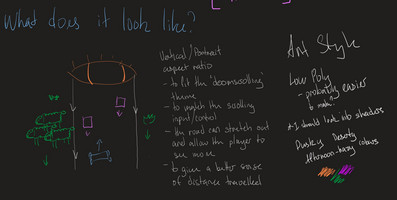 What does it look like?
Vertical / Portrait
aspect ratio
- to fit the 'doomscrolling'
theme
- to match the scrolling
input/control
- the road can stretch out
and allow the player to
see more
- to give a better sense
of distance travelled
Art Style
Low Poly
- probably easier
to make?
I should look into shaders
Dusky
afternoon-hazy colours